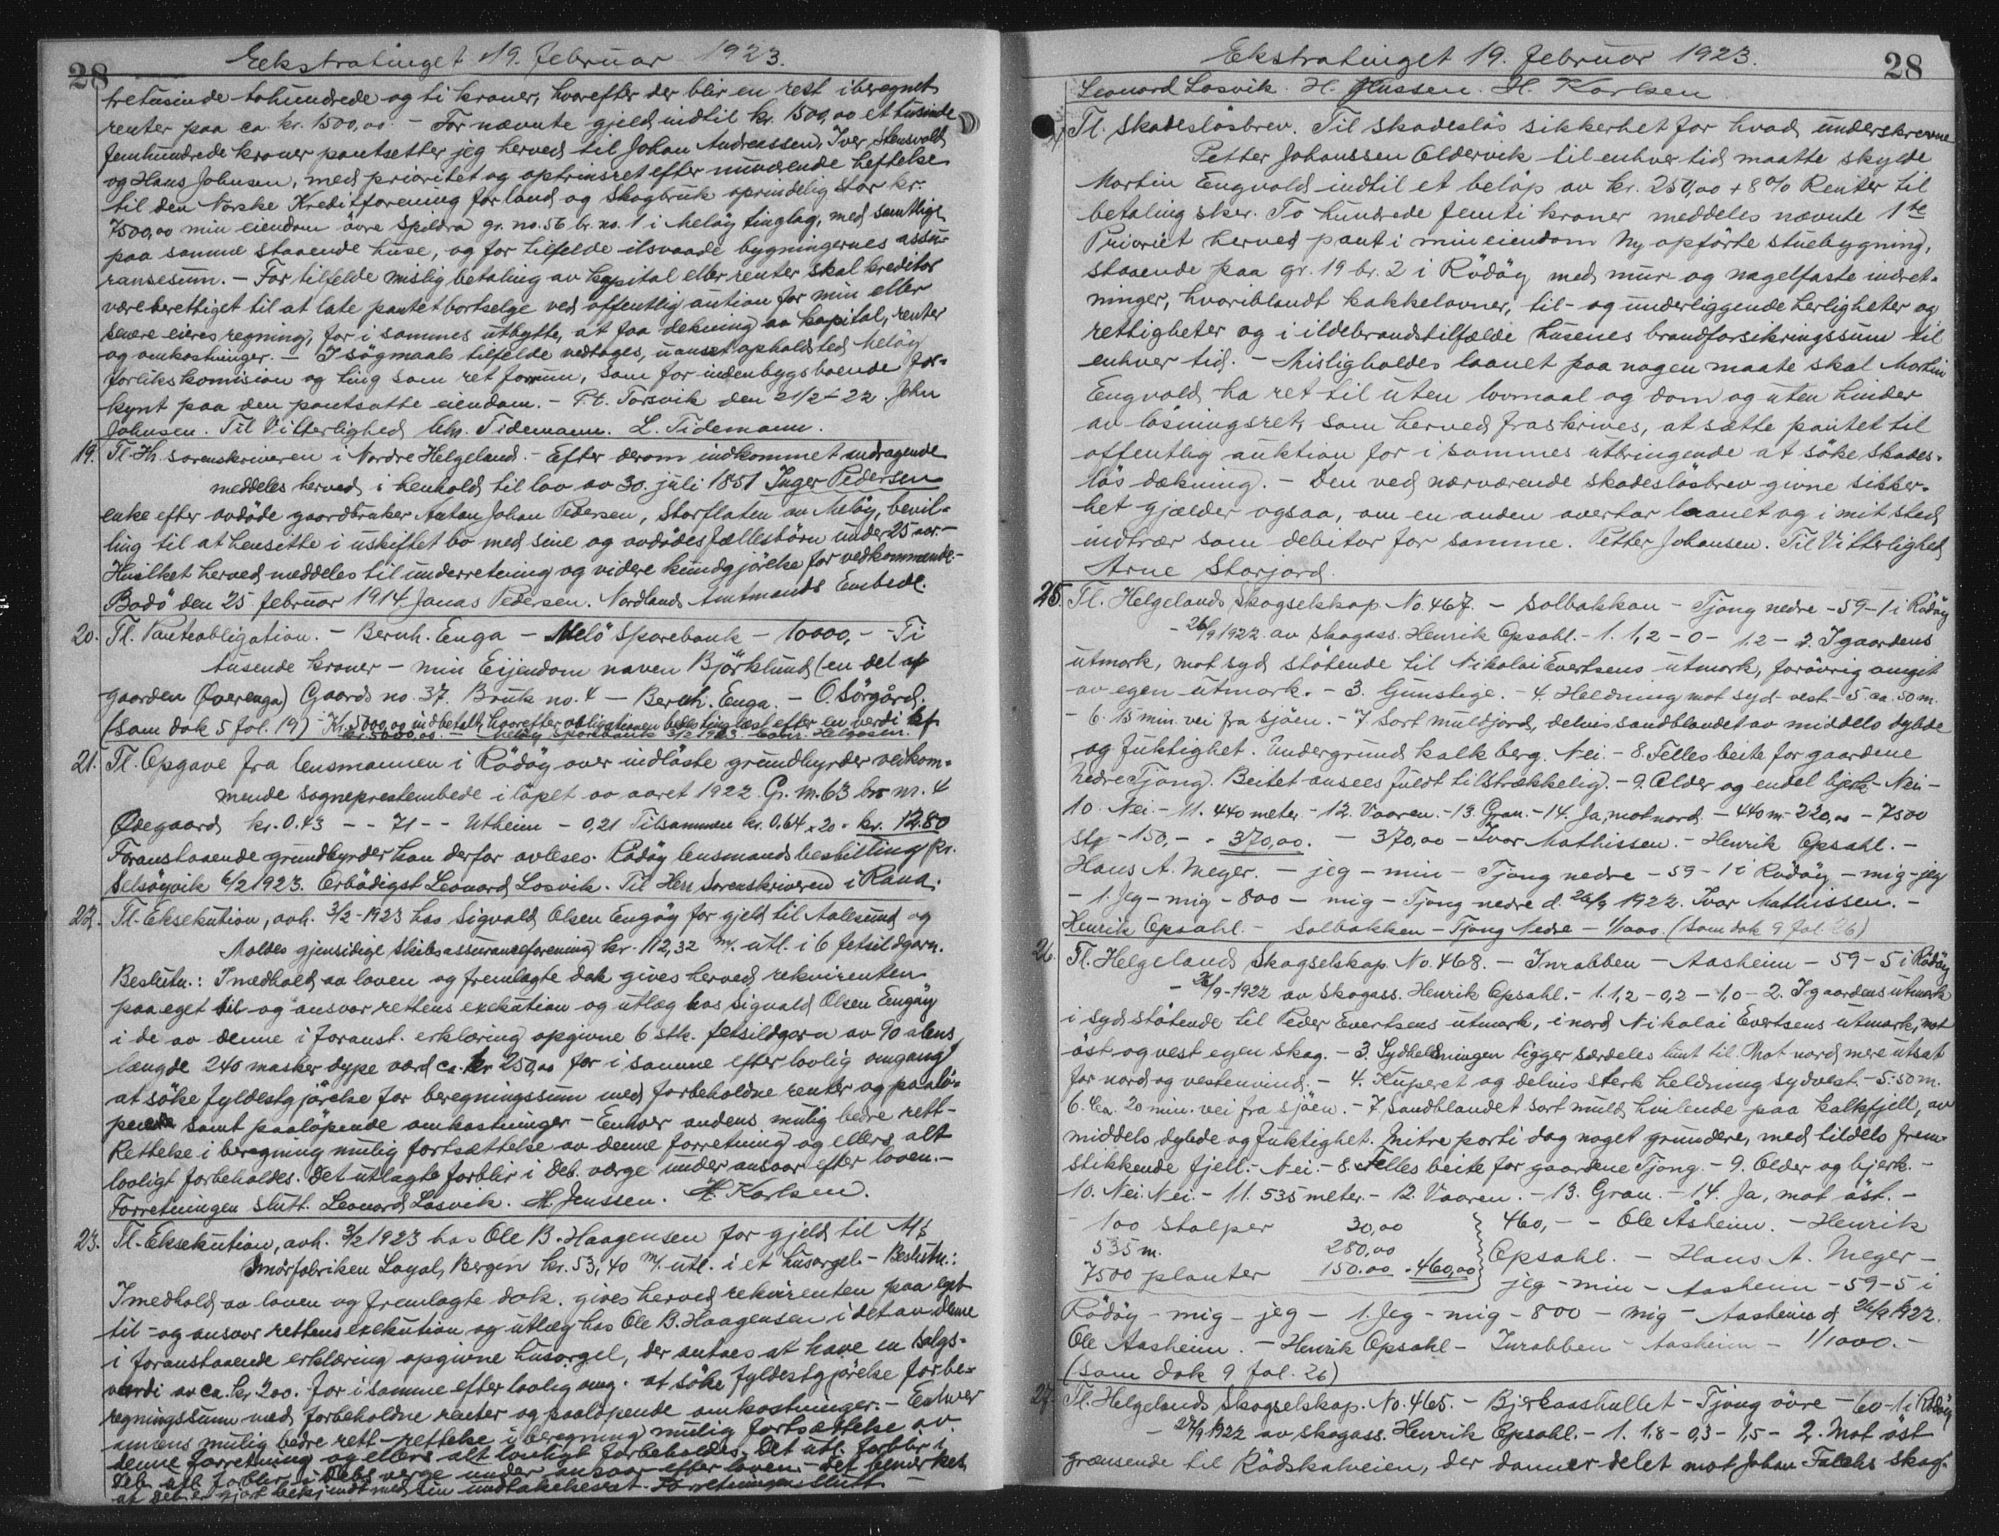 28
Eekstratinget 19. februar 1923.
tretusinde tohundrede og ti kroner, hvorefter der blir en rest iberegnet
renter paa ca kr. 1500,00. - For nævnte gjeld indtil kr. 1500,00 et tusinde
femhundrede kroner pantsetter jeg herved til Johan Andreassen, Iver Stensvold
og Hans Johnsen, med prioritet og optrinsret efter nuværende heftelse
til den Norske Kreditforening for land og Skogbruk oprindelig stor kr.
7500,00 min eiendom övre Spildra gr. no. 56 br. no. 1 i Melöy tinglag, med samtlige
paa samme staaende huse, og for tilfelde ilsvaade bygningernes assu-
ransesum. - For tilfelde mislig betaling av kapital eller renter skal kreditor
være berettiget til at late pantet bortselge ved offentlig auktion for min eller
senere eieres regning, for i sammes utbytte, at faa dekning av kapital, renter
og omkostninger. - I sögmaals tilfelde vedtages, uanset opholdsted Melöy
forlikskomision og ting som ret forum, som for indenbygsboende for-
kynt paa den pantsatte eiendom. - P.t. Torsvik den 21/2-22. John
Johnsen. Til Vitterlighed Chr. Tidemann. L. Tidemann.
19. Tl. Hr. sorenskriveren i Nordre Helgeland. - Efter derom indkommet andragende
meddeles herved i henhold til lov av 30. juli 1851 Inger Pedersen
enke efter avdöde gaardbruker Anton Johan Pedersen, Storflaten av Melöy, bevil-
ling til at hensitte i uskiftet bo med sine og avdödes fællesbörn under 25 aar. -
Hvilket herved meddeles til underretning og videre kundgjörelse for vedkommende.
Bodö den 25 februar 1914. Jonas Pedersen. Nordlands Amtmands Embede.
20. Tl. Panteobligation. - Bernh. Enga - Melö Sparebank - 10000,- Ti
tusende kroner - min Eijendom naven Björklund (en del af
gaarden Överenga) Gaards no. 37. Bruk no. 4 - Bernh. Enga. - O Sörgård.
(Som dok 5 fol. 19) - Kr. 5000,00 indbetalt, hvorefter obligationen bedes tinglæst efter en verdi af
kr. 5000,00 - Melöy Sparebank 3/2 1923. Helgesen.
21. Tl. Opgave fra lensmannen i Rödöy over indlöste grundbyrder vedkom-
mende sogneprestembede i löpet av aaret 1922. Gr. nr. 63 br. nr. 4
Ödegaard kr. 0.43 - - 71 - - Utheim - 0,21 Tilsammen kr. 0.64 x 20 = kr. 12.80
Foranstaaende grundbyrder kan derfor avleses. Rödöy lensmandsbestilling pr.
Selsöyvik 6/2 1923. Erbödigst Leonard Losvik. Til Herr Sorenskriveren i Rana.
22. Tl. Eksekution, avh. 3/2-1923 hos Sigvald Olsen Engöy for gjeld til Aalesund og
Moldes gjensidige Skibsassuranceforening kr. 112,32 m/. utl. i 6 fetsildgarn.
Beslutn.: I medhold av loven og fremlagte dok gives herved rekvirenten
paa eget til- og ansvar rettens exekution og utlæg hos Sigvald Olsen Engöy
i de av denne i foranst. erklæring opgivne 6 stk. fetsildgarn av 90 alens
længde 240 masker dype værd ca. kr 250,00 for i samme efter lovlig omgang
at söke fyldestgjörelse for beregningssum med forbeholdne renter og paalö-
pende samt paalöpende omkostninger - Enhver andens mulig bedre rett-
Rettelse i beregning mulig fortsættelse av denne forretning og ellers alt
lovligt forbeholdes. Det utlagte forblir i Deb. værge under ansvar efter loven. -
Forretningen slutt. Leonard Losvik. H. Jenssen. H. Karlsen.
23. Tl. Eksekution, avh. 3/2 1923 hos Ole B. Haagensen for gjeld til A/S
Smörfabriken Loyal, Bergen kr. 53,40 m/. utl. i et husorgel. - Beslutn.:
I medhold av loven og fremlagte dok. gives herved rekvirenten paa eget
til- og ansvar rettens exekution og utlæg hos Ole B. Haagensen i det av denne
i foranstaaende erklæring opgivne husorgel, der antaes at have en salgs-
værdi av ca. kr 200. for i samme efter lovlig omg. at söke fyldestgjörelse for be-
regningssum med forbeholdne renter og paalöpende omkostninger. - Enhver
annens mulig bedre rett-rettelse i beregning mulig fortsættelse av
denne forretning og ellers alt lovligt forbeholdes. Det utl. forblir i
Debs verge under ansvar efter loven - Det bemerkes
at Deb er gjort bekjendt med sin undtakelsesret. Forretningen slutt
Ekstratinget 19. februar 1923.
28
Leonard Losvik. H. Jenssen. H. Karlsen.
Tl. Skadeslösbrev. Til skadeslös sikkerhet for hvad underskrevne
Petter Johanssen Oldervik til enhver tid maatte skylde
Martin Engvold indtil et belöp av kr. 250,00 + 8 % Renter til
betaling sker. To hundrede femti kroner meddeles nævnte 1te
Prioriet herved pant i min eiendom Ny opförte stuebygning,
staaende paa gr. 19 br. 2 i Rödöy med mur og nagelfaste indret-
ninger, hvoriblandt kakkelovner, til- og underliggende herligheter og
rettigheter og i ildebrandstilfælde husenes brandforsikringssum til
enhver tid. - Misligholdes laanet paa nogen maate skal Martin
Engvold ha ret til uten lovmaal og dom og uten hinder
av lösningsret, som herved fraskrives, at sætte pantet til
offentlig auktion for i sammes utbringende at söke skades-
lös dækning. - Den ved nærværende skadeslösbrev givne sikker-
het gjælder ogsaa, om en anden overtar laanet og i mit sted
indtrær som debitor for samme. Petter Johansen. Til Vitterlighed
Arne Storjord.
25. Tl. Helgelands Skogselskap No. 467. - Solbakkan - Tjong nedre - 59-1 i Rödöy
- 26/9 1922 av skogass. Henrik Opsahl. - 1. 1,2 - 0 - 1,2 - 2. I gaardens
utmark, mot syd stötende til Nikolai Evertsens utmark, forövrig omgit
av egen utmark. - 3. Gunstige. - 4. Heldning mot syd-vest - 5. ca. 50 m.
- 6. 15 min. vei fra sjöen. - 7. Sort muldjord, delvis sandblandet av middels dybde
og fuktighet. Undergrund kalk berg. Nei - 8. Felles beite for gaardene
nedre Tjong. Beitet ansees fuldt tilstrækkelig. - 9. Older og endel bjerk - Nei -
10. Nei - 11. 440 meter. - 12. Vaaren. - 13. Gran. - 14. Ja, mot nord - 440 m. 220,00 - 7500
stp - 150,- = 370,00. - 370,00 - Ivar Mathissen. - Henrik Opsahl. -
Hans A. Meyer. - jeg - min - Tjong nedre - 59-1 i Rödöy - mig - jeg
- 1. Jeg - mig - 800 - mig - Tjong nedre d. 26/9 1922. Ivar Mathissen. -
Henrik Opsahl - Solbakken - Tjong Nedre - 1/1000. (Som dok 9 fol. 26)
26. Tl. Helgelands Skogselskap. No. 468. - Inrabben - Aasheim - 59-5 i Rödöy
- 26/9-1922 av skogass. Henrik Opsahl. - 1. 1,2 - 0,2 - 1,0 - 2. I gaardens utmark
i syd stötende til Peder Evertsens utmark, i nord Nikolai Evertsens utmark, mot
öst og vest egen skog. - 3. Sydheldningen ligger særdeles lunt til. Mot nord mere utsat
for nord og vestenvind. - 4. Kuperet og delvis sterk heldning sydvest. - 5. 50 m.
6. Ca. 20 min. vei fra sjöen. - 7. Sandblandet sort muld hvilende paa kalkfjell, av
middels dybde og fuktighet. Mitre parti dog noget grundere, med tildels frem-
stikkende fjell. - Nei - 8. Felles beite for gaardene Tjong. - 9. Older og bjerk. -
10. Nei. Nei. - 11. 535 meter. - 12. Vaaren. - 13. Gran. - 14. Ja, mot öst. -
100 stolper 30,00 460,- - Ole Åsheim. - Henrik
535 m. 280,00 Opsahl. - Hans A. Meyer -
7500 planter 150.00 = 460,00 jeg - min - Aasheim - 59-5 i
Rödöy - mig - jeg - 1. Jeg - mig - 800 - mig - Aasheim d. 26/9 1922.
Ole Aasheim. - Henrik Opsahl - Inrabben - Aasheim - 1/1000. -
(Som dok 9 fol. 26)
27. Tl. Helgelands Skogselskap. No. 465. - Bjerkaashallet - Tjong övre - 60-1 i Rödöy
- 27/9 1922 av skogass. Henrik Opsahl. - 1. 1,8 - 0,3 - 1,5 - 2. Mot öst
grænsende til Rödskalveien, der danner delet mot Johan Falchs skog.